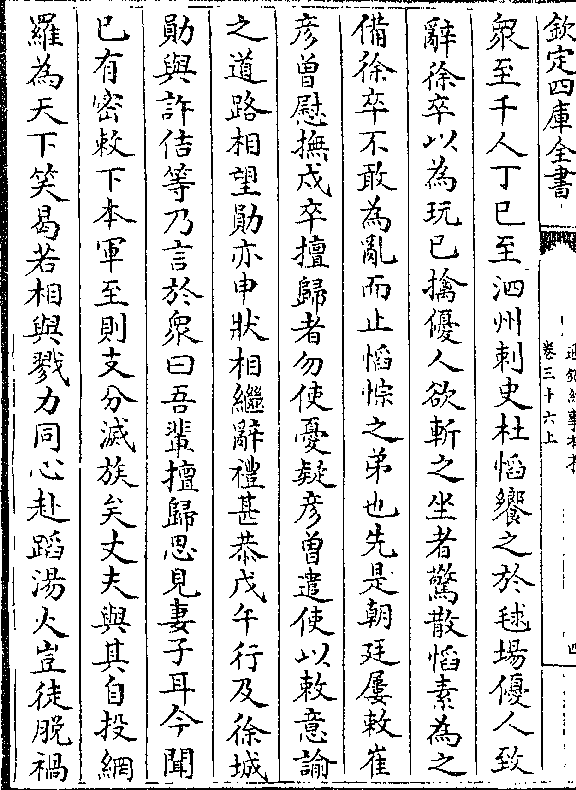 欽定四庫全書
卷三十六上
衆至千人丁巳至泗州刺史杜慆饗之於毬場優人致
辭徐卒以為玩已擒優人欲斬之坐者驚散慆素為之
備徐卒不敢為亂而止慆悰之弟也先是朝廷屢敕崔
彦曾慰撫戍卒擅歸者勿使憂疑彦曾遣使以敕意諭
之道路相望勛亦申狀相繼辭禮甚恭戊午行及徐城
勛與許佶等乃言於衆曰吾輩擅歸思見妻子耳今聞
已有密敕下本軍至則支分滅族矣丈夫與其自投網
羅為天下笑曷若相與戮力同心赴蹈湯火豈徒脫禍